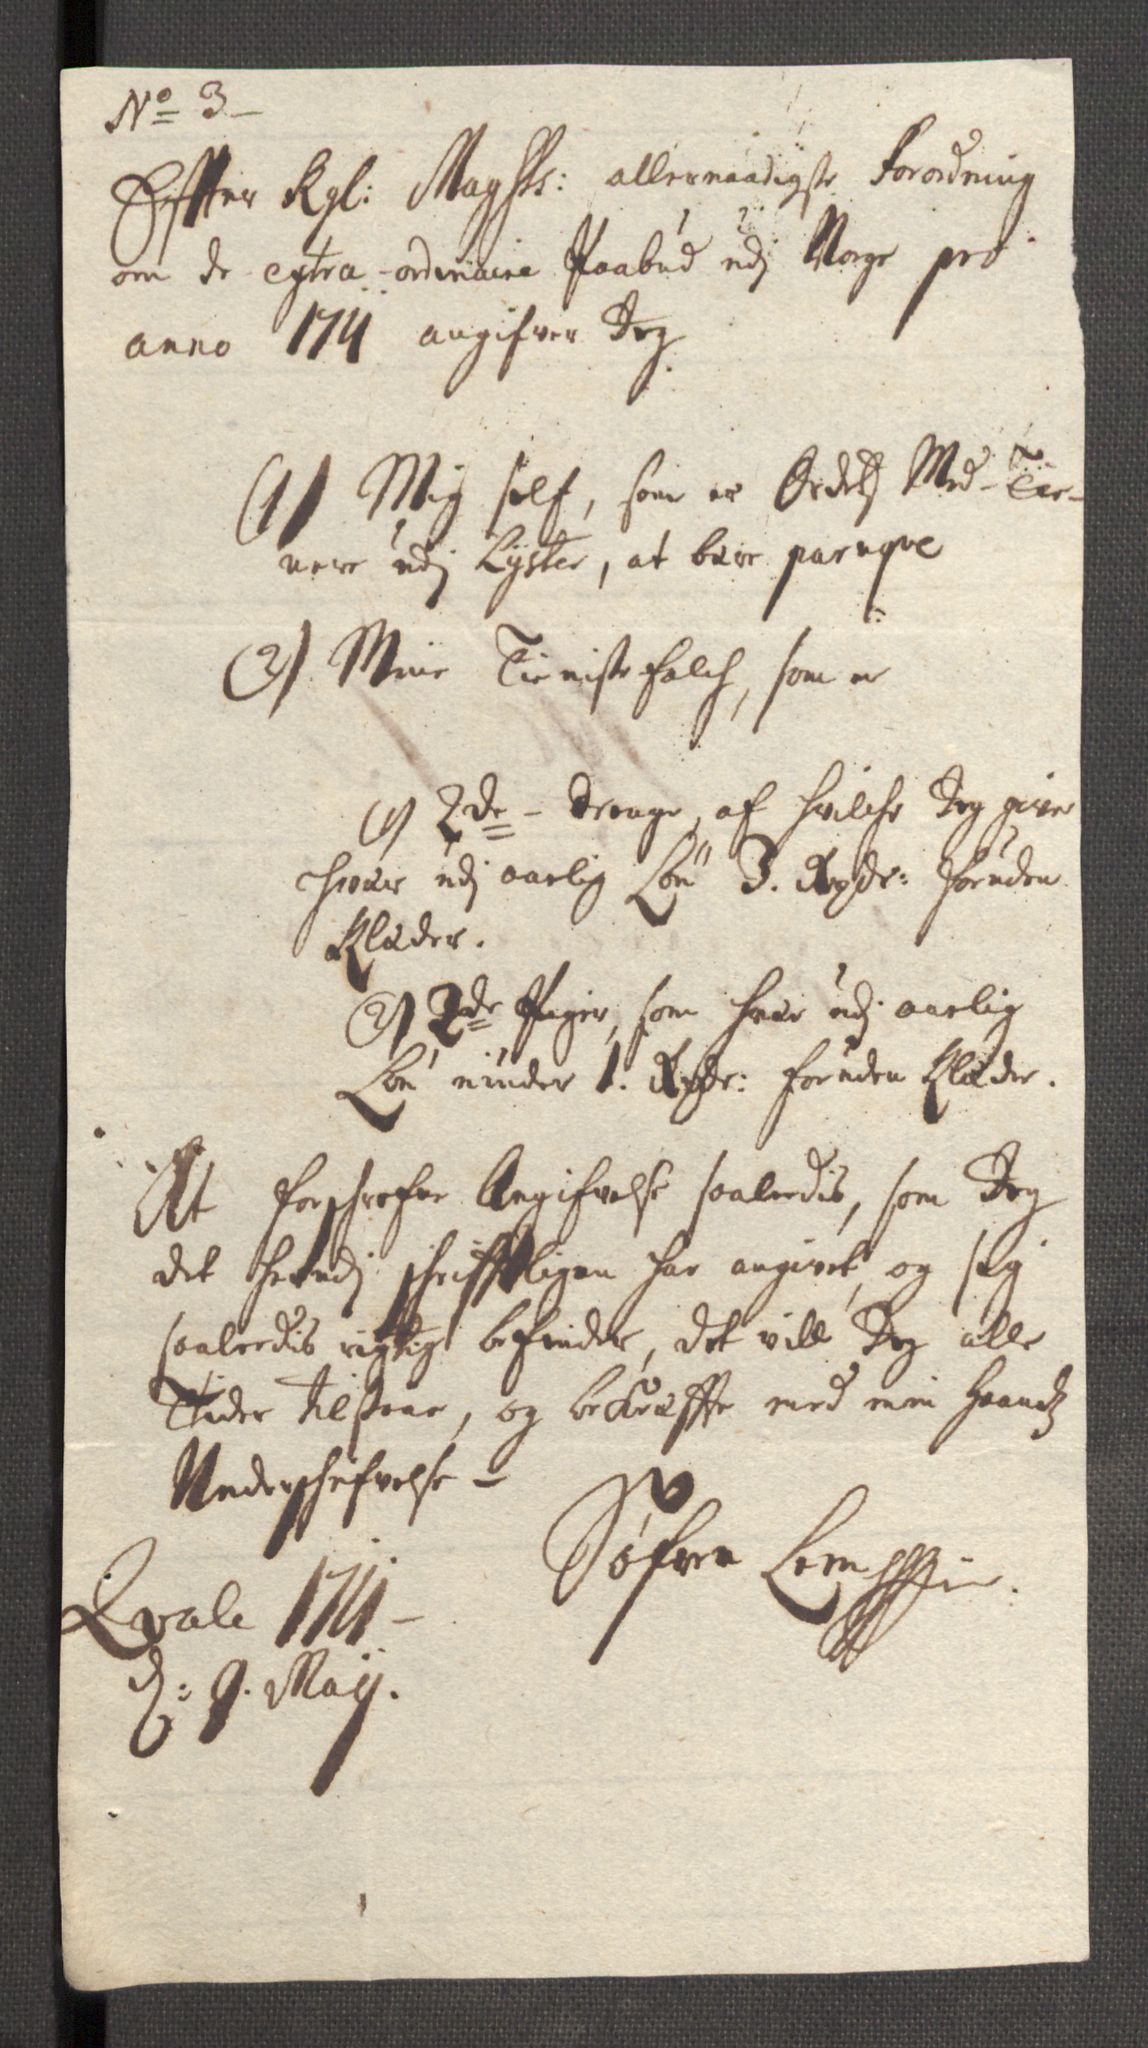 No 3
Effter Kgl: Maysts: allernaadigste Forordning
om de extra-ordinaire Paabud udj Norge pro
anno 1711 angifver Jeg
(1) Mig self, som er Ordetz Med-Tie-
nere udj Lyster, at bære
(2) Mine Tieniste folch, som er
1) 2de Drenge, af hvilche Jeg giver
hver udj aarlig Løn 3. Rixdr: foruden
Klæder.
2) 2de Piger, som hver udj aarlig
Løn nÿder 1. Rixdr: foruden Klæder.
At forschrefne Angifvelse saaledis, som Jeg
det herudj schrifftligen har angivet, og sig
saaledis rigtig befinder, det vill Jeg alle
Tider tilstaae, og bekræffte med min Haandz
Underschrifvelse –
Søfren
Qvale 1711 –
d: 9. Maij.